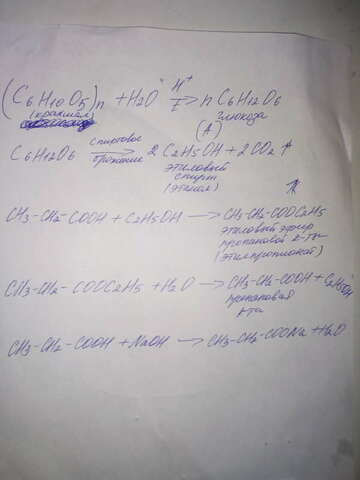 (C6H10O5)n + H2O H+ → t n C6H12O6
(крахмал) глюкоза
(А)
C6H12O6 спиртовое брожение → 2 C2H5OH + 2CO2 ↑
этиловый
спирт
(этанол)
CH3-CH2-COOH + C2H5OH → CH3-CH2-COOC2H5
этиловый эфир
пропановой к-ты
(этилпропионат)
CH3-CH2-COOC2H5 + H2O → CH3-CH2-COOH + C2H5OH
пропановая
к-та
CH3-CH2-COOH + NaOH → CH3-CH2-COONa + H2O